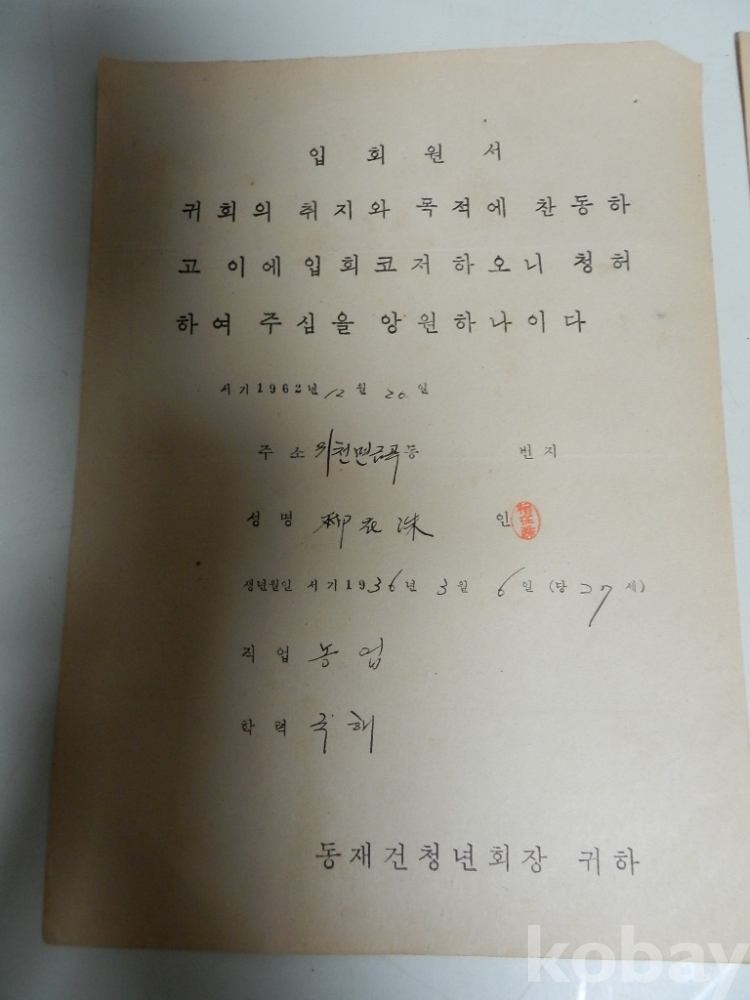 입회원서
귀회의 취지와 목적에 찬동하
고 이에 입회코저 하오니 청허
하여 주심을 앙원하나이다
서기 1962년 12월 20일
주소 천면금곡동 번지
성명 柳 洙 인
생년월일 서기 1936년 3월 6일 (당 27세)
직업 농업
학력 국해
동재건청년회장 귀하
kobay